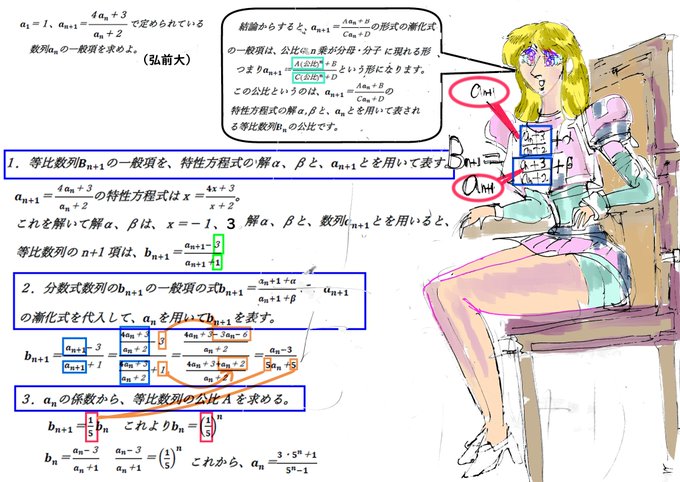 a₁ = 1、aₙ₊₁ = (4aₙ + 3)/(aₙ + 2) で定められている
数列aₙの一般項を求めよ。
(弘前大)
結論からすると、aₙ₊₁ = (Aaₙ + B)/(Caₙ + D) の形式の漸化式
の一般項は、公比のn乗が分母・分子 に現れる形
つまりaₙ₊₁ = (A(公比)ⁿ + B)/(C(公比)ⁿ + D) という形になります。
この公比というのは、aₙ₊₁ = (Aaₙ + B)/(Caₙ + D) の
特性方程式の解α,βと、aₙとを用いて表され
る等比数列Bₙの公比です。
1. 等比数列Bₙ₊₁の一般項を、特性方程式の解α、βと、aₙ₊₁とを用いて表す。
aₙ₊₁ = (4aₙ + 3)/(aₙ + 2) の特性方程式は x = (4x + 3)/(x + 2)。
これを解いて解α、βは、x = −1、3 解α、βと、数列aₙ₊₁とを用いると、
等比数列の n+1 項は、bₙ₊₁ = (aₙ₊₁ − 3)/(aₙ₊₁ + 1)
2. 分数式数列のbₙ₊₁の一般項の式bₙ₊₁ = (aₙ₊₁ + α)/(aₙ₊₁ + β) aₙ₊₁
の漸化式を代入して、aₙを用いてbₙ₊₁を表す。
bₙ₊₁ = (aₙ₊₁ − 3)/(aₙ₊₁ + 1) = ((4aₙ + 3)/(aₙ + 2) − 3)/((4aₙ + 3)/(aₙ + 2) + 1) = ((4aₙ + 3 − 3aₙ − 6)/(aₙ + 2))/((4aₙ + 3 + aₙ + 2)/(aₙ + 2)) = (aₙ − 3)/(5aₙ + 5)
3. aₙの係数から、等比数列の公比 A を求める。
bₙ₊₁ = (1/5)bₙ これよりbₙ = (1/5)ⁿ
bₙ = (aₙ − 3)/(aₙ + 1) (aₙ − 3)/(aₙ + 1) = (1/5)ⁿ これから、aₙ = (3・5ⁿ + 1)/(5ⁿ − 1)
aₙ₊₁
Bₙ₊₁ =
+ α
+ β
aₙ₊₁